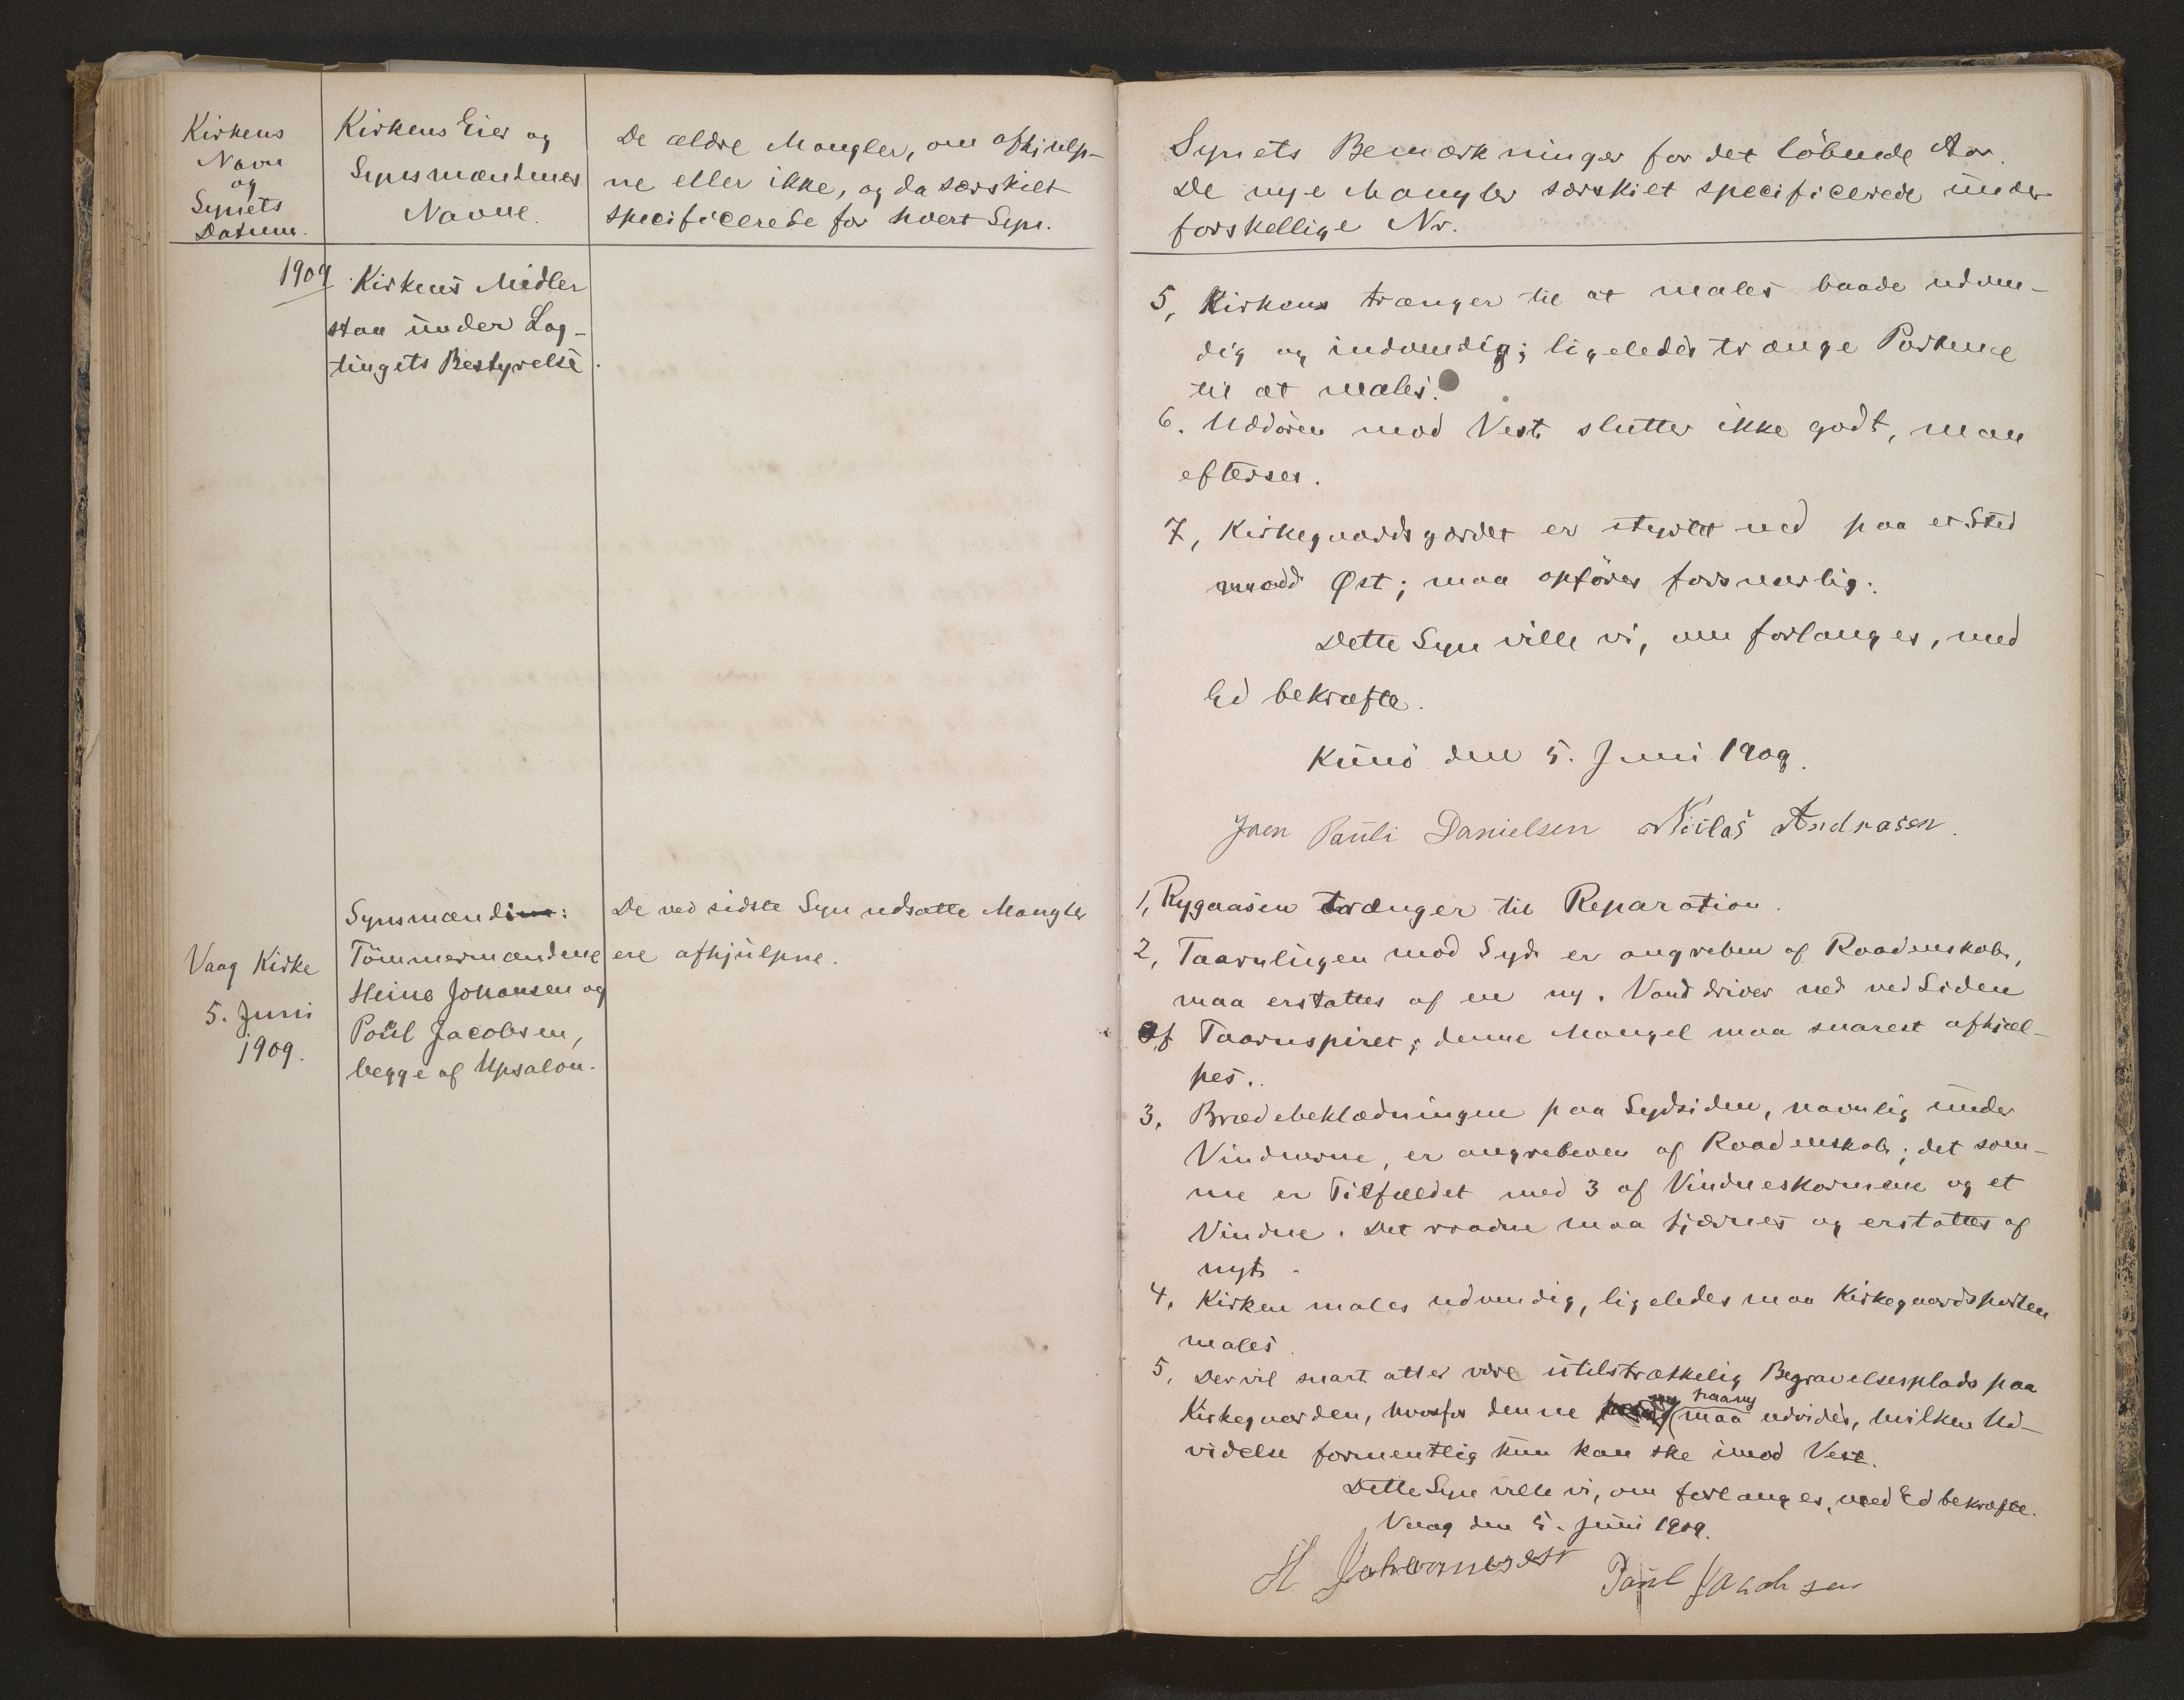 Kirkens
Navn
og
Synets
Datum.
Kirkens Eier og
Synsmændenes
Navne.
De ældre Mangler, om afhjulp-
ne eller ikke, og da særskilt
specificerede for hvert Syn.
1909
Kirkens Midler
staa under Lag-
tingets Bestyrelse.
Vaag Kirke
5. Juni
1909.
Synsmænd:
Tömmermændene
Heine Johansen og
Poul Jacobsen,
begge af Upsalon.
De ved sidste Syn udsatte Mangler
ere afhjulpne.
Synets Bemærkninger for det löbende Aar.
De nye Mangler særskilt specificerede under
forskellige Nr.
5, Kirken trænger til at males baade udven-
dig og indvendig; ligeledes trænge Portene
til at males.
6. Uddören mod Vest slutter ikke godt, maa
efterses.
7, Kirkegaardsgærdet er styrtet ned paa et Sted
mod Øst; maa opföres forsvarlig.
Dette Syn ville vi, om forlanges, med
Ed bekræfte.
Kunö den 5. Juni 1909.
Joen Pauli Danielsen Niclas Andreasen.
1, Rygaasen trænger til Reparation.
2, Taarnlugen mod Syd er angreben af Raadenskab,
maa erstattes af en ny. Vand driver ned ved Siden
af Taarnspiret; denne Mangel maa snarest afhjæl-
pes.
3, Brædebeklædningen paa Sydsiden, navnlig under
Vinduerne, er angreben af Raadenskab; det sam-
me er Tilfældet med 3 af Vindueskarmene og et
Vindue. Det raadne maa fjærnes og erstattes af
nyt.
4, Kirken males udvendig, ligeledes maa Kirkegaardsporten
males.
5, Der vil snart atter være utilstrækkelig Begravelsesplads paa
Kirkegaarden, hvorfor denne maa paa ny udvides, hvilken Ud-
videlse formentlig kun kan ske imod Vest.
Dette Syn ville vi, om forlanges, med Ed bekræfte.
Vaag den 5. Juni 1909.
H Johannesen Paul Jacobsen